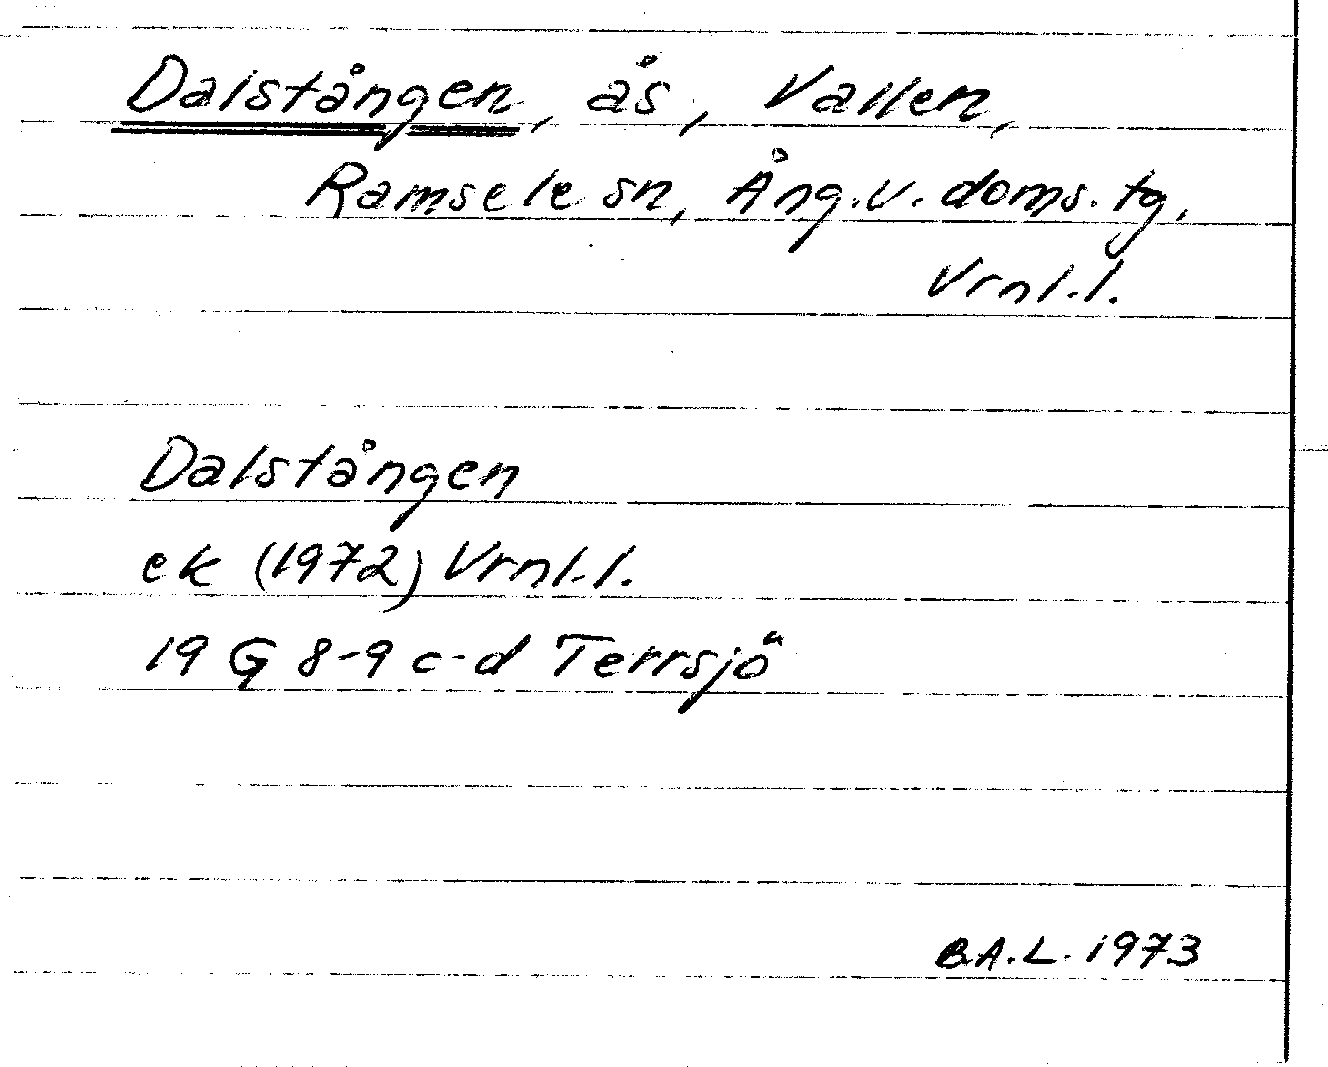 Dalstången, ås, Vallen,
Ramsele sn, Ång.v.doms.tg,
Vrnl.l.
Dalstången
ek (1972) Vrnl.l.
19 G 8-9 c-d Terrsjö
B.A.L. 1973